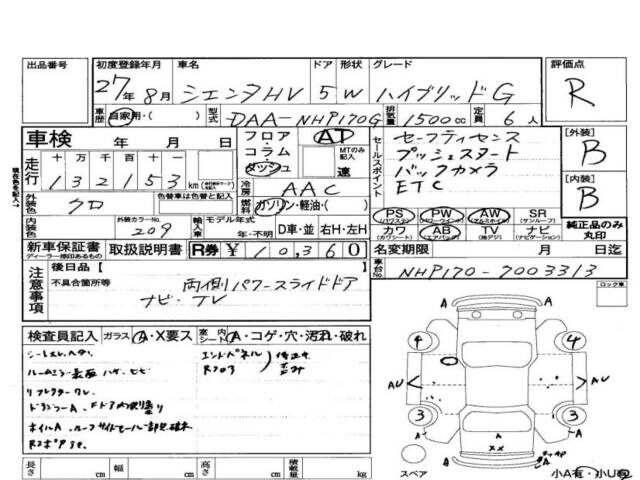 出品番号 初度登録年月 車名 ドア 形状 グレード 評価点
27年8月 シエンタHV 5 W ハイブリッドG R
車歴 自家用・( ) 型式 DAA-NHP170G 排気量 1500cc 定員 6人
車検 年 月 日
フロア・コラム・ダッシュ
AT
MTのみ記入
速
セールスポイント
セーフティセンス
プッシュスタート
バックカメラ
ETC
[外装] B
[内装] B
純正品のみ丸印
走行 十万千百十一
132153 km
冷房 AAC
外装色 クロ 色替車は色替と記入
燃料 ガソリン・軽油・( )
PS (パワステ) PW (パワーウインド) AW (アルミホイル) SR (サンルーフ)
カワ (カワシート) AB (エアバック) TV (地デジ) ナビ (ナビゲーション)
内装色 外装カラーNo. 209
輸入車 モデル年式 年・不明 D車・並 右H・左H
新車保証書 ディーラー捺印あるもの 取扱説明書 R券 ¥10,360
名変期限 月 日迄
車台No. NHP170-7003313
注意事項 後日品【 】
不具合箇所等 両側パワースライドドア
ナビ・TV
現在色を記入→
ロック車
検査員記入 ガラス A・X要ス 室内 シート A・コゲ・穴・汚れ・破れ
エンドパネル
リフレクターワレ
ホイルA
4 4
AU AU
3 3
A A
A
XX
スペア
小A有・小U有
長さ cm 幅 cm 高さ cm 積載量 kg